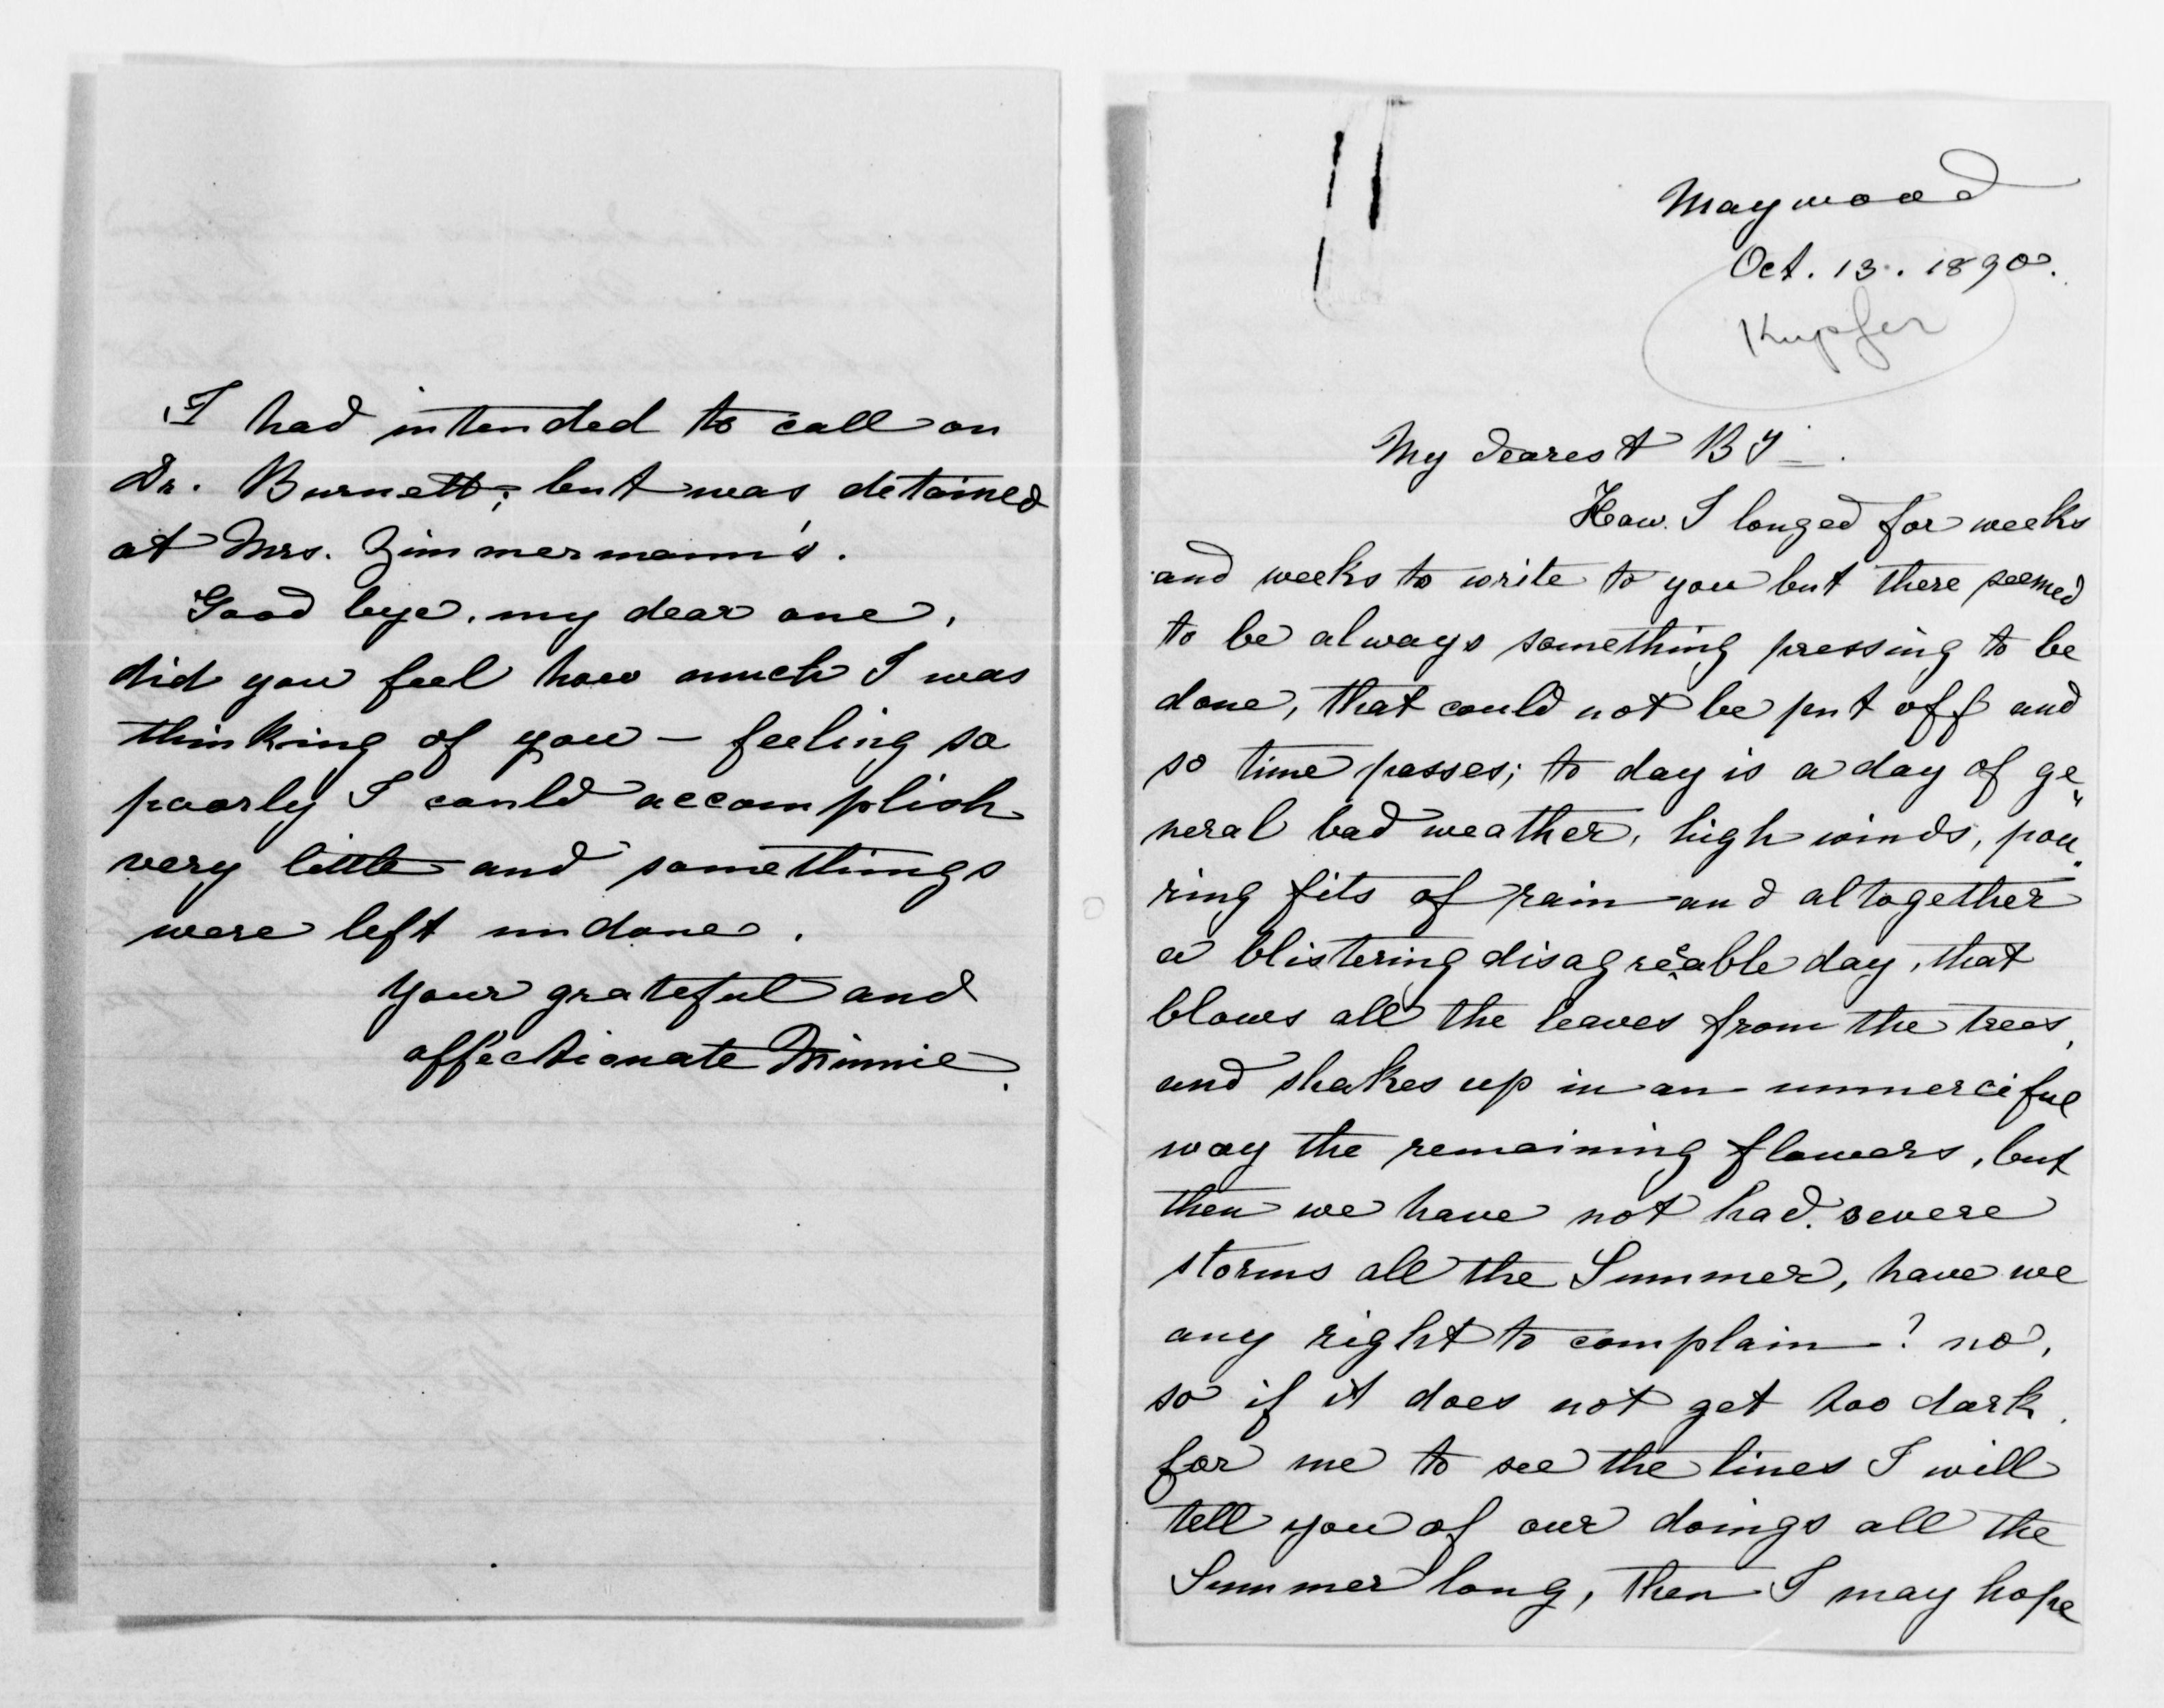 I had intended to call on
Dr. Burnett; but was detained
at Mrs. Zimmermann's.
Good bye, my dear one,
did you feel how much I was
thinking of you – feeling so
poorly I could accomplish
very little and somethings
were left undone.
Your grateful and
affectionate Minnie.
Maywood
Oct. 13. 1890.
Kupfer
My dearest BY.
How I longed for weeks
and weeks to write to you but there seemed
to be always something pressing to be
done, that could not be put off and
so time passes; to day is a day of ge„
neral bad weather, high winds, pou„
ring fits of rain and altogether
a blistering disagreeable day, that
blows all the leaves from the trees,
and shakes up in an unmerciful
way the remaining flowers, but
then we have not had severe
storms all the Summer, have we
any right to complain? no,
so if it does not get too dark
for me to see the lines I will
tell you of our doings all the
Summer long, then I may hope